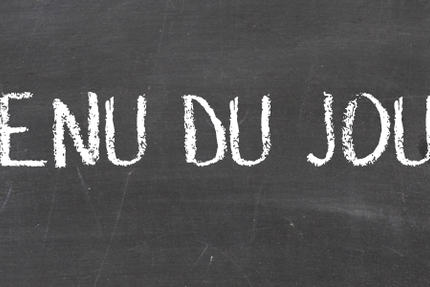 ENU DU JOU